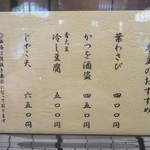 のおすすめ
葉わさび 四〇〇円
かつを酒盗 四〇〇円
青大豆
冷し豆腐 五〇〇円
じゃこ天 六五〇円